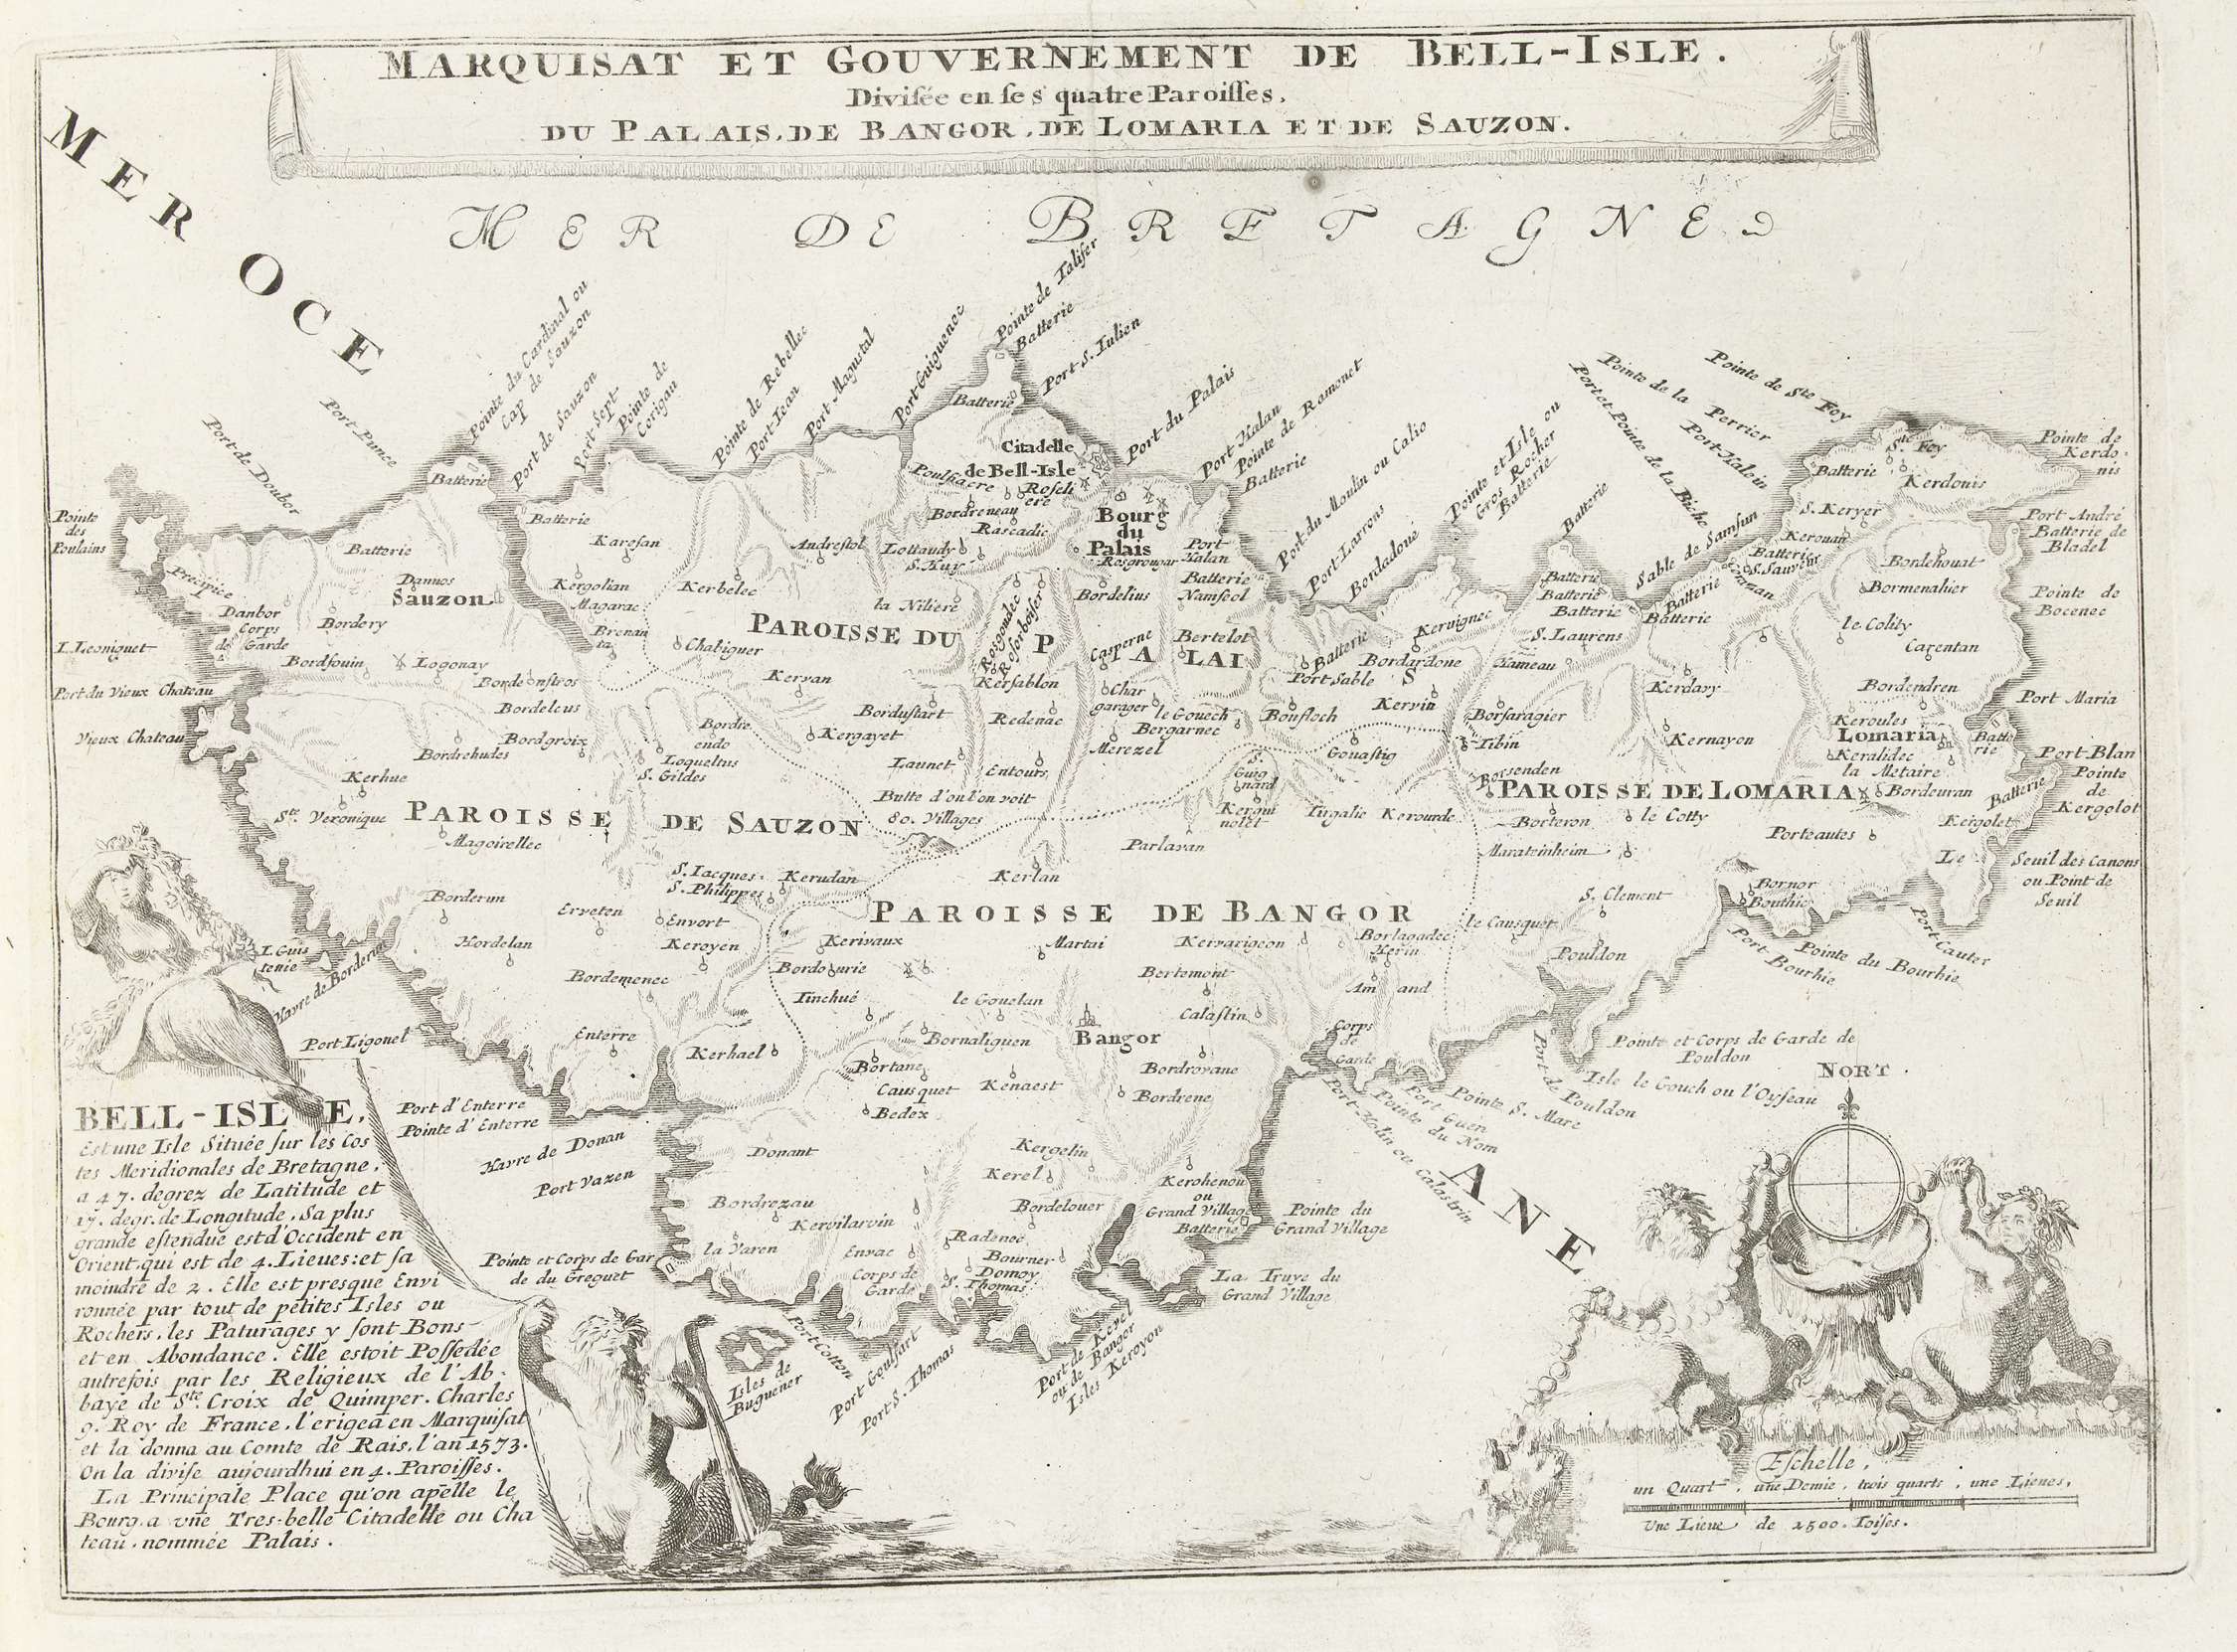 MARQUISAT ET GOUVERNEMENT DE BELL-ISLE.
Divisée en ses quatre Paroisses,
DU PALAIS, DE BANGOR, DE LOMARIA ET DE SAUZON.
MER OCE
MER DE BRETAGNE
Port de Doubor
Port Punce
Pointe du Cardinal ou
Cap de Sauzon
Port de Sauzon
Port Sept
Pointe de
Corigau
Pointe de Rebellec
Port Iean
Port Magustal
Port Guiguenec
Pointe de Talifer
Batterie
Port S. Iulien
Port du Palais
Port Halan
Pointe de Ramonet
Batterie
Port du Moulin ou Calio
Port Larrons
Bordadoué
Pointe et Isle ou
Gros Rocher
Batterie
Batterie
Port et Pointe de la Biche
Pointe de la Perrier
Port Halein
Pointe de Ste Foy
Sable de Samsun
Pointe de
Kerdo-
nis
Port André
Batterie de
Bladel
Pointe de
Bocenec
Port Maria
Port Blan
Pointe
de
Kergolot
Seuil des Canons
ou Point de
Seuil
Pointe
des
Poulains
Precipice
I. Lesniguet
Port du Vieux Chateau
Vieux Chateau
Batterie
Batterie
Batterie
Dannos
Sauzon
Danbor
Corps
de Garde
Bordery
Bordsouin
Logonay
Bordeleus
Bordgroix
Bordrehudes
Kerhue
Ste. Veronique
PAROISSE DE SAUZON
Magoirellec
Karesan
Kergolian
Magarac
Brenan
ta
Kerbelec
Andrestol
Chabiguer
Kervan
Bordre
endo
Loqueltus
S. Gildes
Kergayet
Bordustart
Launet
Butte d'ou l'on voit
80. Villages
PAROISSE DU PALAIS
Batterie
Citadelle
de Bell-Isle
Poulhacre
Roseli
ere
Bordreneau
Rascadic
Lottaudy
S. Huy
la Niliere
Rosgoudec
Kersablon
Redenac
Entours
Bourg
du
Palais
Rosgrougar
Port
Halan
Batterie
Namseol
Bordelius
Casperne
Bertelot
Char
garager
le Gouech
Bergarnec
Merezel
Boufloch
Port Sable
Batterie
Bordardone
Keruignec
Kervin
Gouastig
S.
Guig
nard
Kergui
nolet
Tirgalie
Kerourde
Parlavan
Kerlan
Batterie
Batterie
Batterie
S. Laurens
Hameau
Borsaragier
Tibin
Borsenden
Batterie
Batterie
Kerdavy
Kernayon
PAROISSE DE LOMARIA
Borteron
le Cotty
Porteautes
Marateinheim
Batterie
Ste Foy
Kerdonis
S. Keryer
Kerouan
Batterie
S. Sauveur
Bordehouat
Bormenahier
le Colity
Carentan
Bordendren
Keroules
Lomaria
Keralidec
la Metaire
Bordeuran
Batte
rie
Batterie
Kergolet
Le
S. Clement
le Causquet
Pouldon
Bornor
Bouthic
Port Bourhic
Pointe du Bourhic
Port Cauter
S. Iacques
S. Philippes
Kerudan
Borderun
Erveten
Envort
Hordelan
Keroyen
Bordemenec
I. Guis
tenic
Havre de Borderu
Port Ligonel
Enterre
Kerhael
Port d'Enterre
Pointe d'Enterre
Havre de Donan
Port Vazen
PAROISSE DE BANGOR
Kerivaux
Martai
Kervarigeon
Borlagadec
Herin
Am and
Tinchué
le Gouelan
Bertemont
Calastin
Bornaliguen
Bangor
Bortane
Causquet
Kenaest
Bedex
Bordrovane
Bordrene
Corps
de
Garde
Port Halin ou Calastrin
Pointe du Nom
Port Guen
Pointe S. Marc
Port de Pouldon
Pointe et Corps de Garde de
Pouldon
Isle le Gouch ou l'Oyseau
Donant
Kergelin
Kerel
Bordelouer
Kerohenou
ou
Grand Village
Batterie
Pointe du
Grand Village
La Truye du
Grand Village
Bordrezau
Kervilarvin
la Varen
Envac
Corps de
Garde
Radenec
Bourner
Domoy
S. Thomas
Pointe et Corps de Gar
de du Greguet
Isles de
Buguener
Port Cotton
Port Goulfart
Port S. Thomas
Port de Kerel
ou de Bangor
Isles Keroyon
ANE
NORT.
BELL-ISLE,
Est une Isle Située sur les Cos
tes Meridionales de Bretagne,
a 47. degrez de Latitude et
17. degr. de Longitude, Sa plus
grande estendue est d'Occident en
Orient, qui est de 4. Lieues: et sa
moindre de 2. Elle est presque Envi
ronnée par tout de petites Isles ou
Rochers, les Paturages y sont Bons
et en Abondance. Elle estoit Possedée
autrefois par les Religieux de l'Ab-
baye de Ste. Croix de Quimper. Charles
9. Roy de France, l'erigea en Marquisat
et la donna au Comte de Rais, l'an 1573.
On la divise aujourdhui en 4. Paroisses.
La Principale Place qu'on apelle le
Bourg, a une Tres-belle Citadelle ou Cha
teau, nommée Palais.
Eschelle.
un Quart, une Demie, trois quarts, une Lieues,
Une Lieue de 2500. Toises.